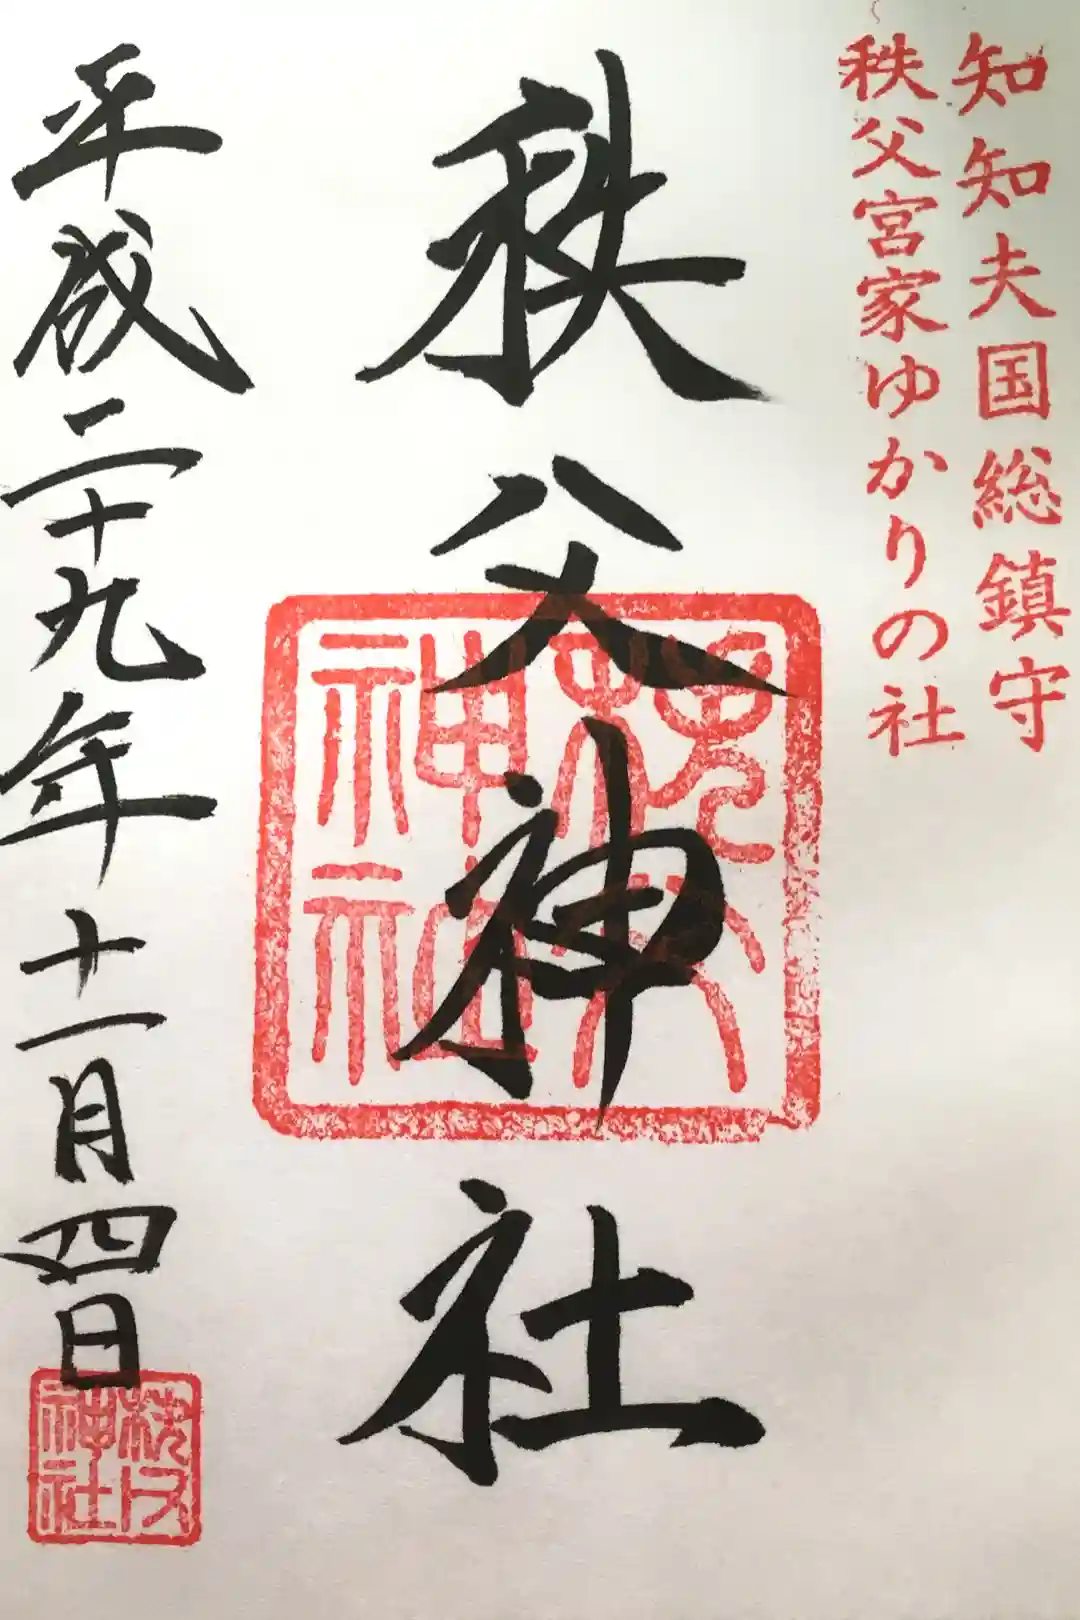 知知夫国総鎮守
秩父宮家ゆかりの社
秩父神社
秩父神社
平成二十九年十一月四日
秩父神社